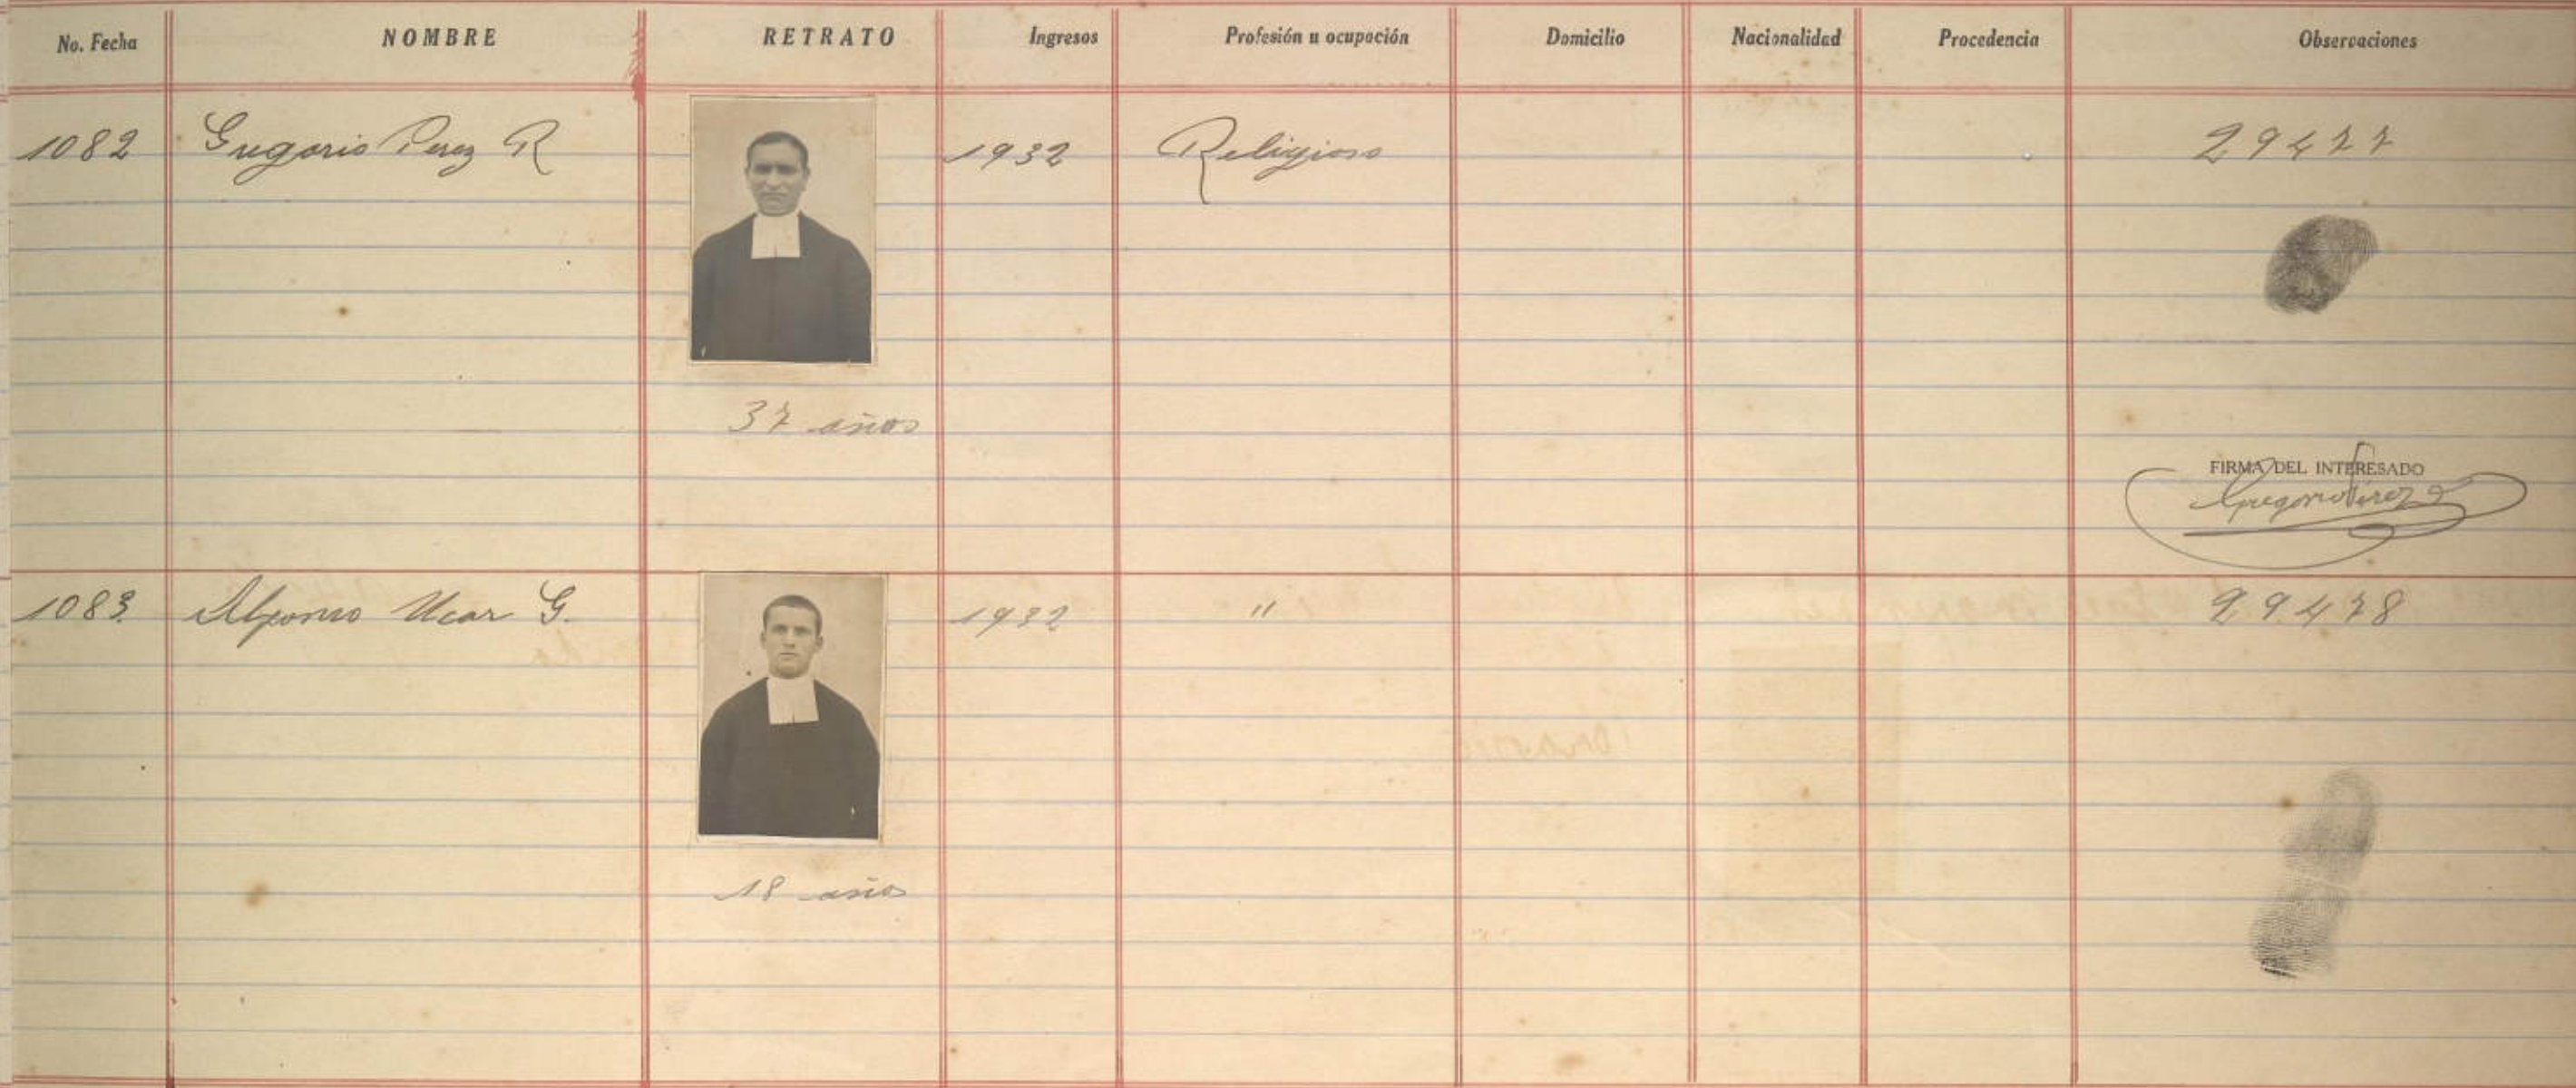 No. Fecha NOMBRE RETRATO Ingresos Profesión u ocupación Domicilio Nacionalidad Procedencia Observaciones
1082 Gregorio Perez R 1932 Religioso 29477
37 años
FIRMA DEL INTERESADO
Gregorio Pérez
1083 Alfonso Ucar G. 1932 " 29478
18 años